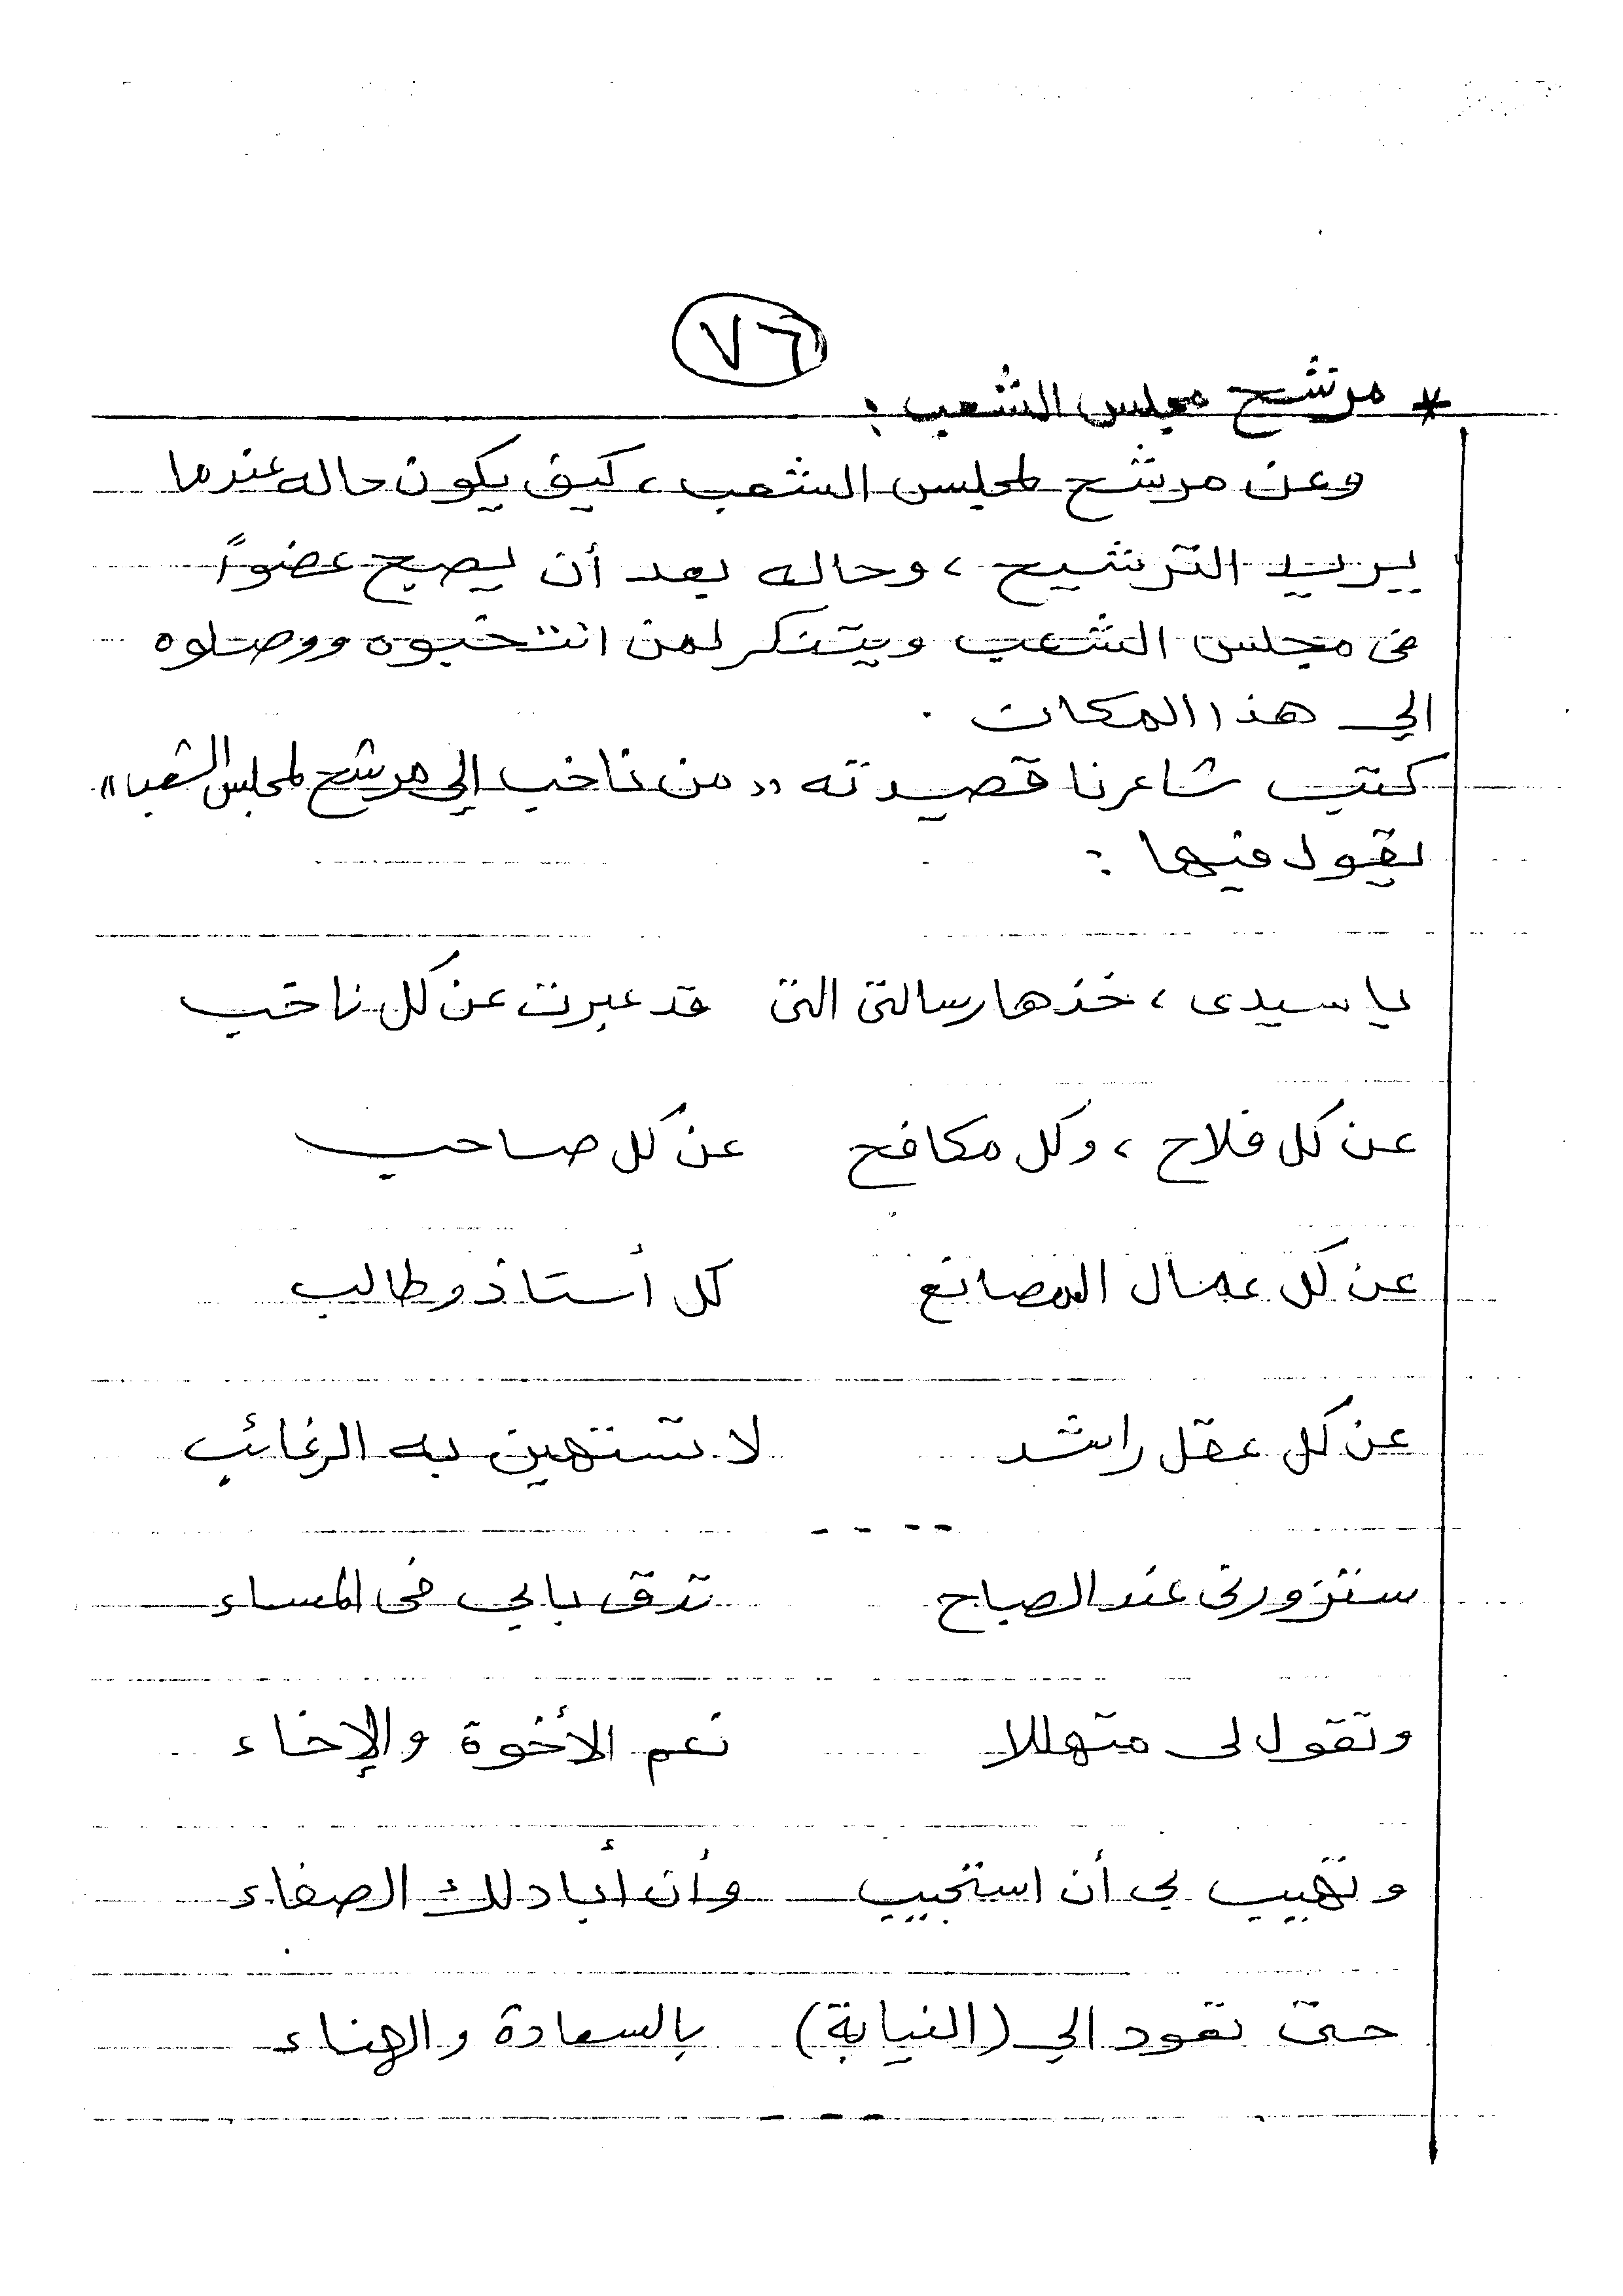 ٧٦
* مرشح مجلس الشعب :
وعن مرشح لمجلس الشعب ، كيف يكون حاله عندما
يريد الترشيح ، وحاله بعد أن يصبح عضواً
فى مجلس الشعب ويتنكر لمن انتخبوه ووصلوه
إلي هذا المكان .
كتب شاعرنا قصيدته « من ناخب إلي مرشح لمجلس الشعب »
يقول فيها :
يا سيدى ، خذها رسالتى التى قد عبرت عن كل ناخب
عن كل فلاح ، وكل مكافح عن كل صاحب
عن كل عمال المصانع كل أستاذ وطالب
عن كل عقل راشد لا تستهين به الرغائب
----
ستزورنى عند الصباح تدق بابي فى المساء
وتقول لى متهللا نعم الأخوة والإخاء
وتهيب بى أن استجيب وأن أبادلك الصفاء
حتى تعود إلي (النيابة) بالسعادة والهناء
---